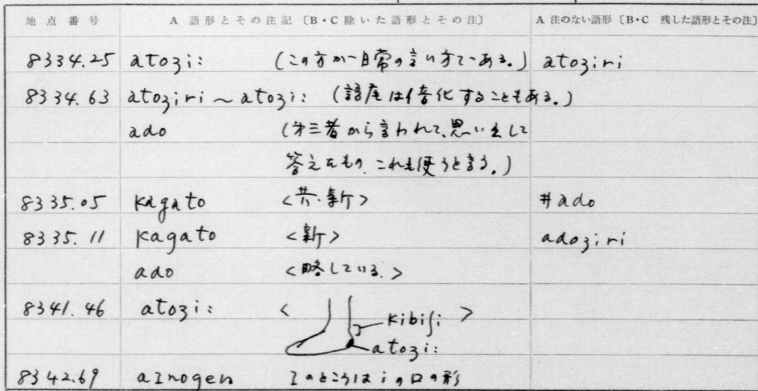 地点番号 A 語形とその注記〔B・C 除いた語形とその注〕 A 注のない語形〔B・C 残した語形とその注〕
8334.25 atoʒi: (この方が日常の言い方である。) atoʒiri
8334.63 atoʒiri～atoʒi: (語尾は倍化することもある。)
ado (才三者から言われて、思い出して
答えたもの、これも使うと言う。)
8335.05 kagato <共・新> #ado
8335.11 kagato <新> adoʒiri
ado <略している。>
8341.46 atoʒi: < kibiʃi >
atoʒi:
8342.69 aɪnogen ɪのところはiの口の形